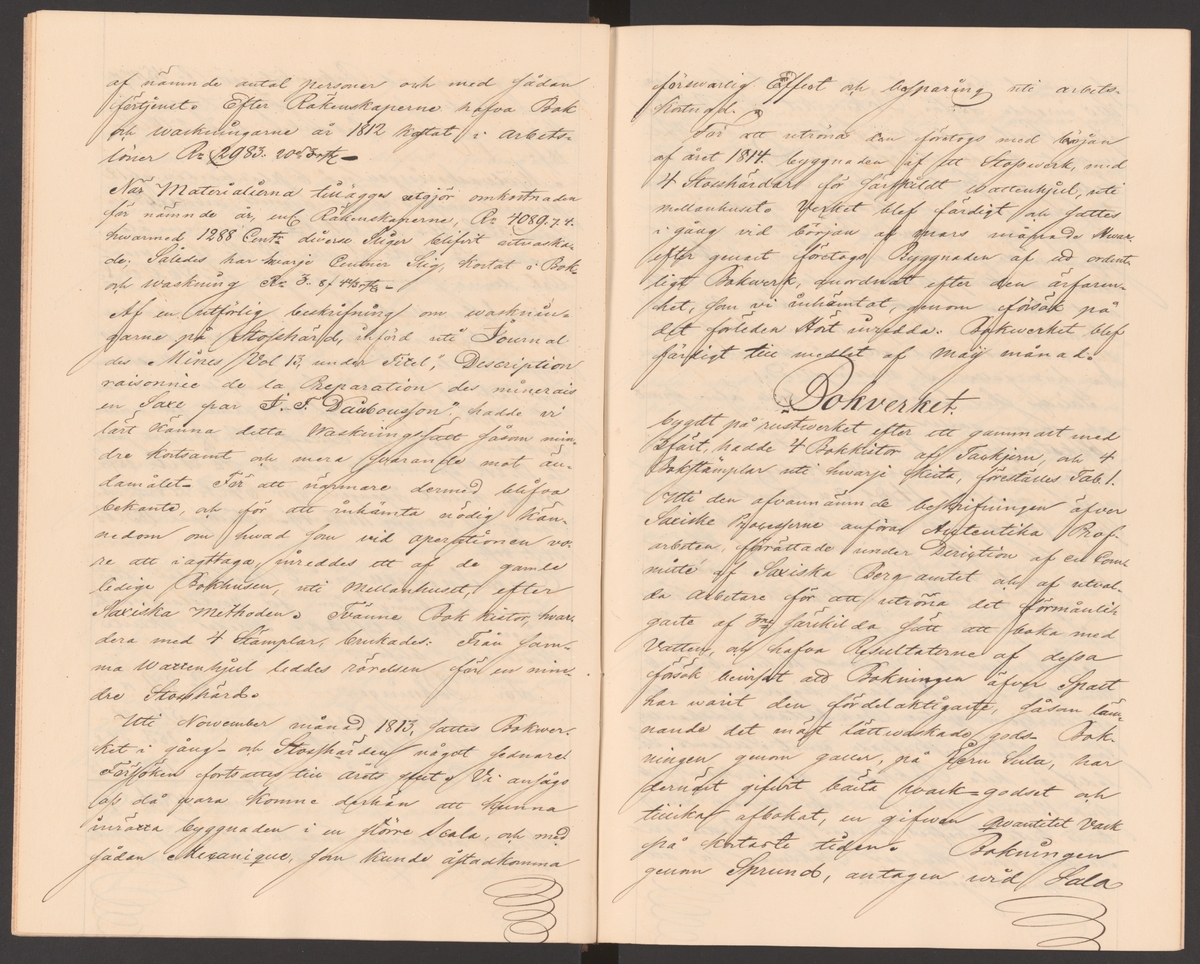 af nämnde antal personer och med sådan
förtjenst. Efter Räkenskaperne hafva Bok
och waskningarne år 1812 kostat, i arbets-
löner Rd 2983. 20 s 3 rst.
När Materialierna tillägges utgjör omkostnaden
för nämnde år, enl Räkenskaperne, Rd 4089. 7. 4.
hwarmed 1288 Centr diverse Stiger blifvit utvaska-
de; Således har hvarje Centner Stig, kostat i Bok-
och waskning Rd 3.
Af en utförlig beskrifning om wasknin-
garne på Stosshärd, införd uti Journal
des Mines Vol 13, under Titel, "Description
raisonnée de la Preparation des minerais
en Saxe par J. F. Daubousson", hadde vi
lärt känna detta Waskningssätt såsom min-
dre kostsamt och mera svarande mot än-
damålet. För att närmare dermed blifva
bekante, och för att inhämta nödig kän-
nedom om hwad som vid operationen vo-
re att iagttaga, inreddes ett af de gamle
ledige Bokhusen, uti Mellanhuset, efter
Saxiska Methoden. Tvänne Bok kistor, hwar-
dera med 4 Stämplar, brukades. Från sam-
ma Wattenhjul leddes rörelsen för en min-
dre Stosshärd.
Uti November månad 1813, sattes Bokwer-
ket i gång och Stosshärden något sednare.
Försöken fortsattes till årets slut. Vi ansågo
oss då wara komne derhän att kunna
inrätta byggnaden i en större Scala, och med
sådan Mecanique, som kunde åstadkomma
förswarlig Effect och besparing uti arbets-
kostnad.
För att utröna den företogs med början
af året 1814. byggnaden af ett Stosswerk, med
4 Stosshärdar för särskildt wattenhjul, uti
mellanhuset. Verket blef färdigt och sattes
i gång vid början af mars månad. Hwar-
efter genast företogs Byggnaden af ett ordent-
ligt Bokwerk, anordnat efter den ärfaren-
het, som vi inhämtat, genom försök på
det förleden Höst inredda. Bokwerket blef
färdigt till medlet af Maij månad.
Bokverket.
bygdt på rustwerket efter ett gammalt med
Pfärt, hadde 4 Bokkistor af Tackjern, och 4
Bokstämplar uti hwarje kista, föreställes Tab 1.
Uti den ofvannämnde beskrifningen öfver
Saxiske Processerne anföras Autentika Prof-
arbeten, förrättade under Direction af en Com-
mitté af Saxiska Bergamtet och af utval-
da arbetare för att utröna det förmånlig-
gaste af 3ne särskilda sätt att boka med
Vatten, och hafva Resultaterne af dessa
försök bewisat att Bokningen öfver Spalt
har warit den fördelaktigaste, såsom läm-
nande det mäst lättwaskade gods. Bok-
ningen genom galler, på Jern Sula, har
dernäst gifvit bästa wask-godset och
tillika afbokat, en gifwen qvantitet Vask
på kortaste tiden. Bokningen
genom Sprund, antagen wid Sala